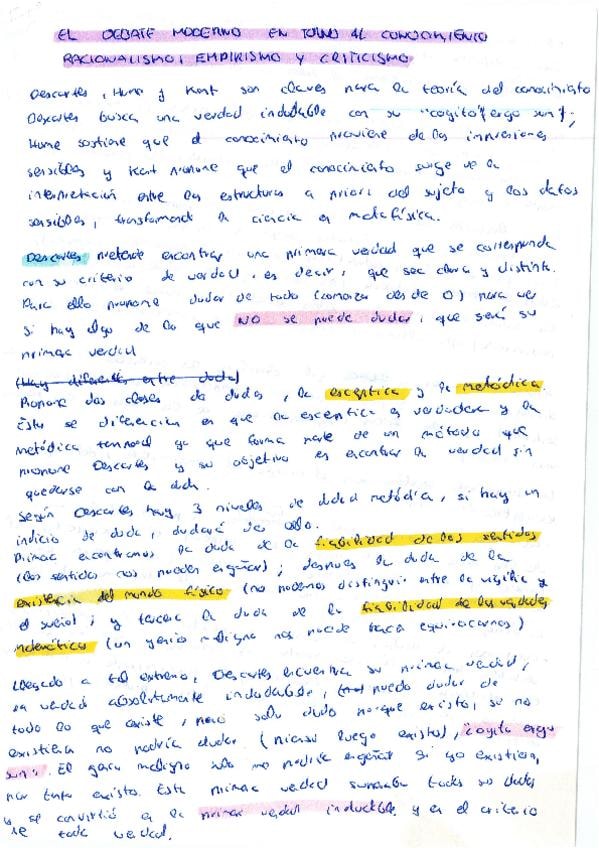 EL DEBATE MODERNO EN TORNO AL CONOCIMIENTO
RACIONALISMO, EMPIRISMO Y CRITICISMO
Descartes, Hume y Kant son claves para la teoría del conocimiento
Descartes busca una verdad indudable con su "cogito ergo sum";
Hume sostiene que el conocimiento proviene de las impresiones
sensibles y Kant propone que el conocimiento surge de la
interpretación entre las estructuras a priori del sujeto y los datos
sensibles, transformando la ciencia en metafísica.
Descartes pretende encontrar una primera verdad que se corresponda
con su criterio de verdad, es decir, que sea clara y distinta.
Para ello propone dudar de todo (comenzar desde 0) para ver
si hay algo de lo que NO se puede dudar, que será su
primera verdad
(Hay diferentes entre duda)
Propone dos clases de dudas, la escéptica y la metódica.
Éstas se diferencian en que la escéptica es verdadera y la
metódica temporal ya que forma parte de un método que
propone Descartes y su objetivo es encontrar la verdad sin
quedarse con la duda.
Según Descartes hay 3 niveles de duda metódica, si hay un
indicio de duda, dudará de ello.
Primero encontramos la duda de la fiabilidad de los sentidos
(los sentidos nos pueden engañar); después la duda de la
existencia del mundo físico (no podemos distinguir entre la vigilia y
el sueño); y tercero la duda de la fiabilidad de las verdades
matemáticas (un genio maligno nos puede hacer equivocarnos)
Llegado a tal extremo, Descartes encuentra su primera verdad,
la verdad absolutamente indudable, puedo dudar de
todo lo que existe, pero solo dudo porque existo, si no
existiera no podría dudar (pienso luego existo), "cogito ergo
sum". El genio maligno solo me podría engañar si yo existiera,
por tanto existo. Esta primera verdad superaba todas sus dudas
y se convirtió en la primera verdad indudable y en el criterio
de toda verdad.